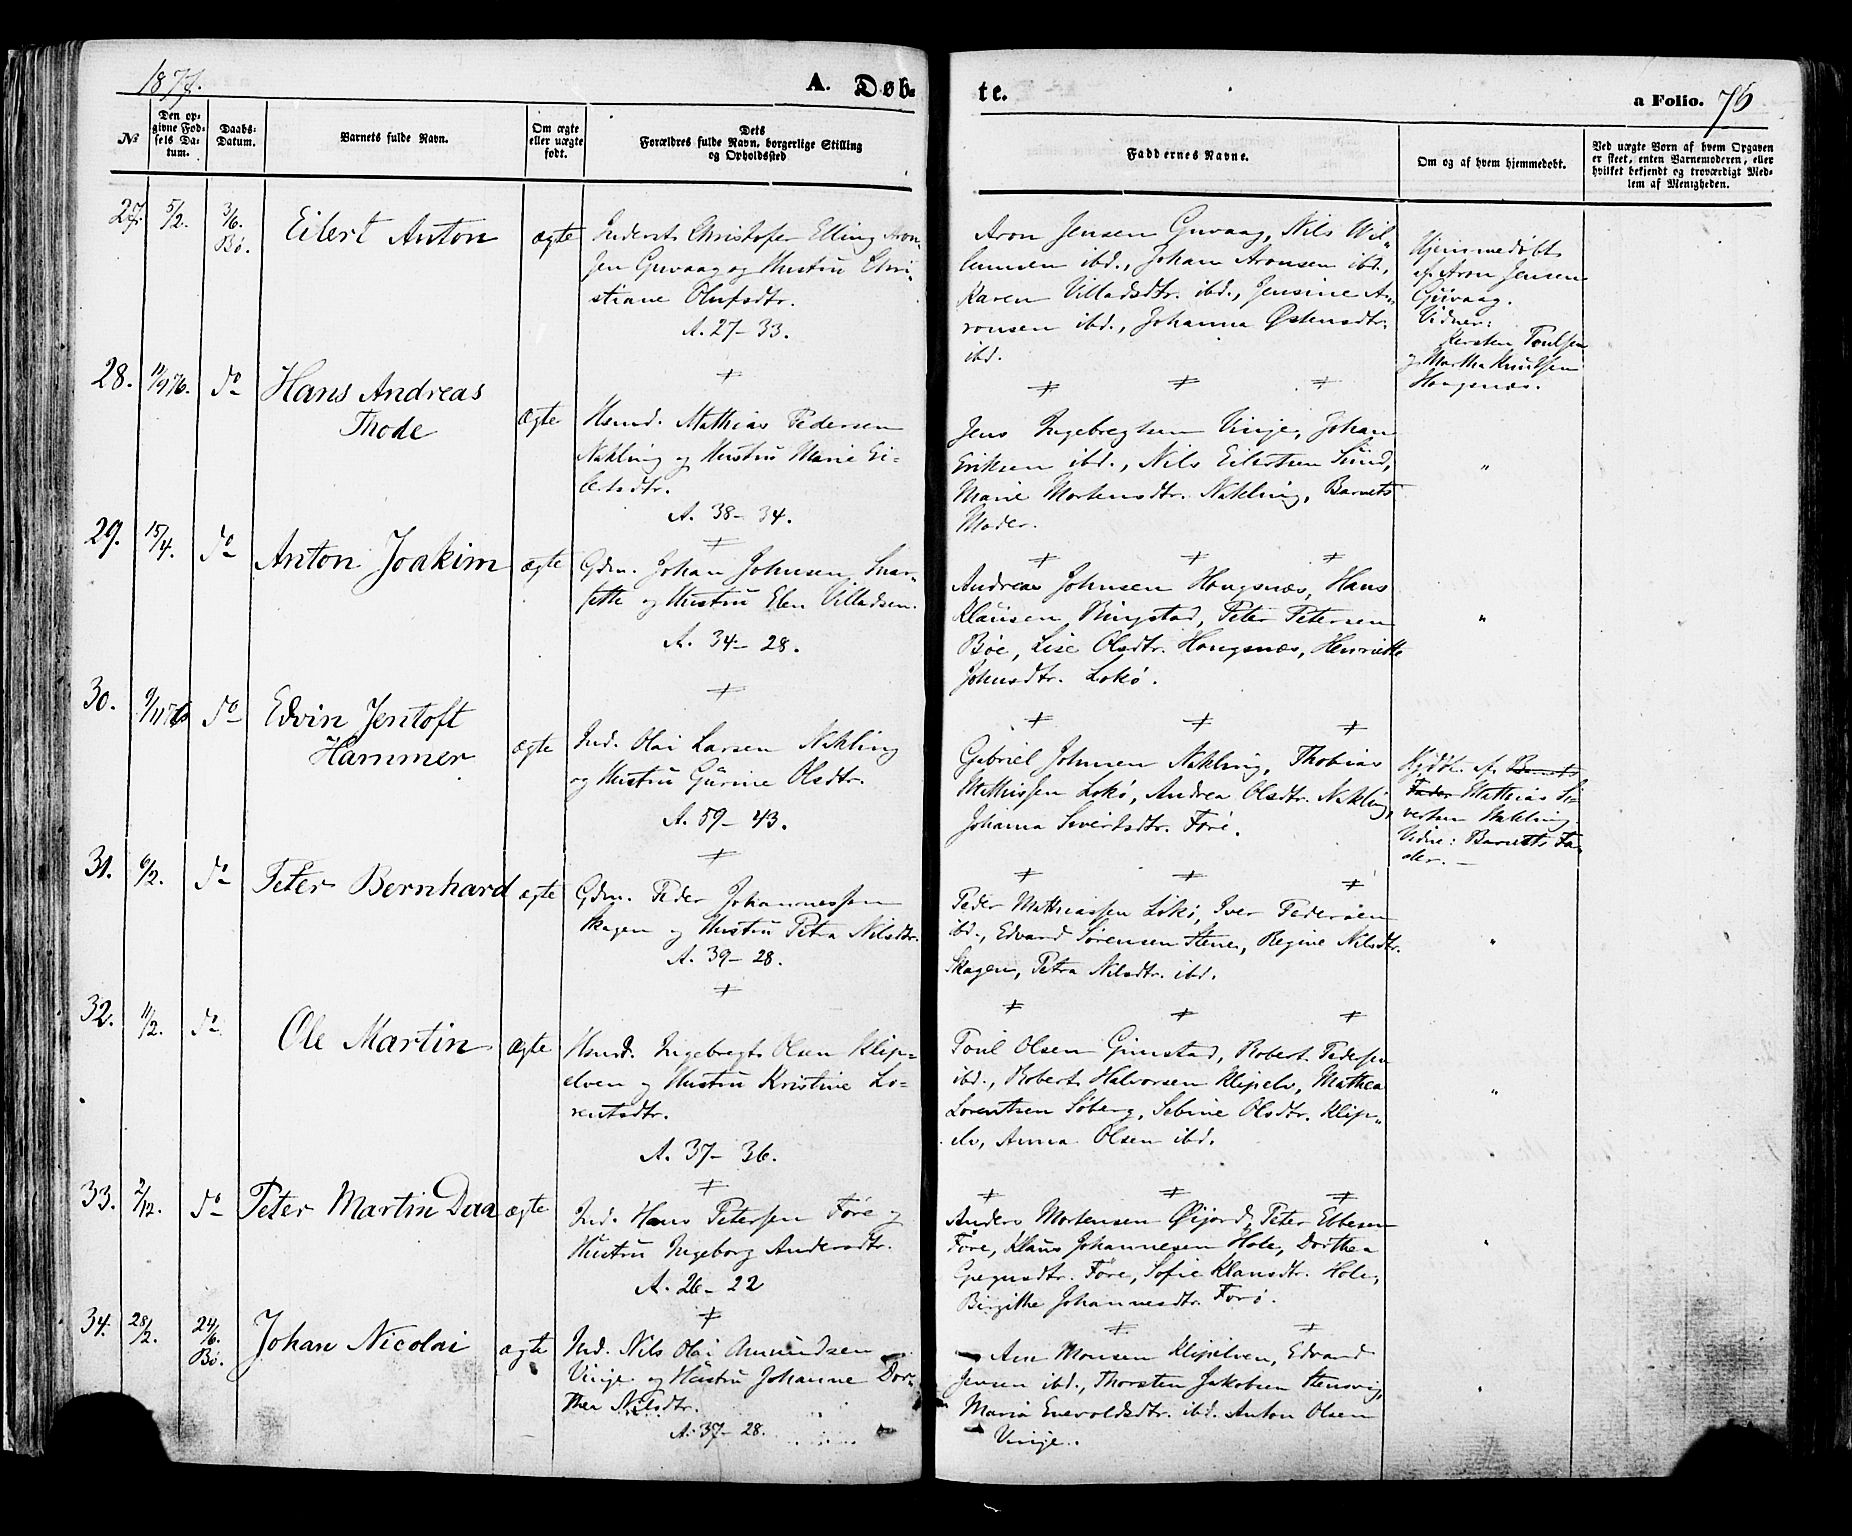 1877.
A. Døb-
te.
a Folio. 76
No
Den op-
givne Fød-
sels Da-
tum.
Daabs-
Datum.
Barnets fulde Navn.
Om ægte
eller uægte
født.
Dets
Forældres fulde Navn, borgerlige Stilling
og Opholdssted
Faddernes Navne.
Om og af hvem hjemmedøbt.
Ved uægte Born af hvem Opgaven
er skeet, enten Barnemoderen, eller
hvilket bekjendt og troværdigt Med-
lem af Menigheden.
27. 5/2. 3/6. Bø.
Eilert Anton
ægte
Inderst Christofer Elling Aron-
sen Guvaag og Hustru Chri-
stiane Olufsdtr.
A. 27-33.
Aron Jensen Guvaag, Nils Wil-
lumsen ibd., Johan Aronsen ibd.,
Karen Villadsdtr. ibd., Jensine A-
ronsen ibd., Johanna Østensdtr.
ibd.
Hjemmedøbt
af Aron Jensen
Guvaag.
Vidner:
Kersten Poulsen
og Martha Knudsen
Hougsnæs.
28. 11/9 76. do
Hans Andreas
Thode
ægte
Hsmd. Mathias Pedersen
Nykling og Hustru Marie Ei-
lertsdtr.
A. 38-34.
Jens Ingebregtsen Vinje, Johan
Eriksen ibd., Nils Eilertsen Sund,
Marie Mortensdtr. Nykling, Barnets
Moder.
"
29. 15/4. do
Anton Joakim
ægte
Gdm. Johan Johnsen Snar-
sette og Hustru Elen Villadsen.
A. 34-28.
Andreas Johnsen Hougsnæs, Hans
Klausen Ringstad, Peter Petersen
Bøe, Lise Olsdtr. Hougsnæs, Henriette
Johnsdtr. Lokø.
"
30. 9/11 76 do
Edvin Jentoft
Hammer
ægte
Ind. Olai Larsen Nykling
og Hustru Gurine Olsdtr.
A. 59-43.
Gabriel Johnsen Nykling, Thobias
Mathissen Lokø, Andrea Olsdtr. Nykling,
Johanna Sivertsdtr. Føre.
Hjdøbt. af Barnets
Fader Mathias Si-
vertsen Nykling
Vidne: Barnets Fa-
der.
31. 6/2. do
Peter Bernhard
ægte
Gdm. Peder Johannessen
Skagen og Hustru Petra Nilsdtr.
A. 39-28.
Peder Mathiassen Lokø, Iver Pedersen
ibd., Edvard Sørensen Stene, Regine Nilsdtr.
Skagen, Petra Nilsdtr. ibd.
"
32. 11/2. do
Ole Martin
ægte
Hsmd. Ingebregt Olsen Klip-
elven og Hustru Kristine Lo-
rentsdtr.
A. 37-36.
Poul Olsen Guvstad, Robert Pedersen
ibd., Robert Halvorsen Klipelv, Mathea
Lorentsen Søberg, Sebine Olsdtr. Klip-
elv, Anna Olsen ibd.
"
33. 2/12. do
Peter Martin Daa
ægte
Ind. Hans Petersen Føre og
Hustru Ingeborg Andersdtr.
A. 26-22
Anders Mortensen Øijord, Peter Ebbesen
Føre, Klaus Johannesen Hole, Dorthea
Gregusdtr. Føre, Sofie Klausdtr. Hole,
Birgithe Johannesdtr. Føre.
"
34. 28/2. 24/6. Bø.
Johan Nicolai
ægte
Ind. Nils Olai Amundsen
Vinje og Hustru Johanne Dor-
thea Nilsdtr.
A. 37-28.
Monsen Klipelven, Edvard
Jensen ibd., Thorsten Jakobsen Stensvig,
Maria Enevoldsdtr. ibd. Anton Olsen
Vinje.
"